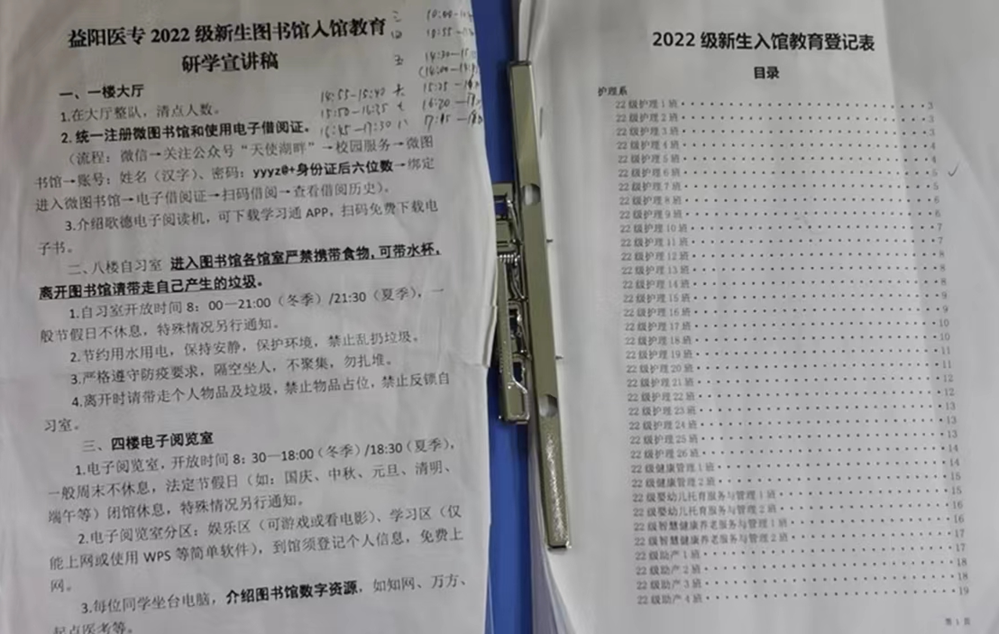 益阳医专 2022 级新生图书馆入馆教育
研学宣讲稿
一、一楼大厅
1.在大厅整队，清点人数。
2.统一注册微图书馆和使用电子借阅证。
（流程：微信→关注公众号“天使湖畔”→校园服务→微图
书馆→账号：姓名（汉字）、密码：yyyz@+身份证后六位数→绑定
进入微图书馆→电子借阅证→扫码借阅→查看借阅历史）。
3.介绍歌德电子阅读机，可下载学习通 APP，扫码免费下载电
子书。
二、八楼自习室 进入图书馆各馆室严禁携带食物，可带水杯，
离开图书馆请带走自己产生的垃圾。
1.自习室开放时间 8：00—21:00（冬季）/21:30（夏季），一
般节假日不休息，特殊情况另行通知。
2.节约用水用电，保持安静，保护环境，禁止乱扔垃圾。
3.严格遵守防疫要求，隔空坐人，不聚集，勿扎堆。
4.离开时请带走个人物品及垃圾，禁止物品占位，禁止反锁自
习室。
三、四楼电子阅览室
1.电子阅览室，开放时间 8：30—18:00（冬季）/18:30（夏季），
一般周末不休息，法定节假日（如：国庆、中秋、元旦、清明、
端午等）闭馆休息，特殊情况另行通知。
2.电子阅览室分区：娱乐区（可游戏或看电影）、学习区（仅
能上网或使用 WPS 等简单软件），到馆须登记个人信息，免费上
网。
3.每位同学坐台电脑，介绍图书馆数字资源，如知网、万方、
起点医考等。
三
四
五
14:55-15:40
15:50-16:35
16:45-17:30
2022 级新生入馆教育登记表
目录
护理系
22 级护理 1 班 3
22 级护理 2 班 3
22 级护理 3 班 3
22 级护理 4 班 4
22 级护理 5 班 4
22 级护理 6 班 5
22 级护理 7 班 5
22 级护理 8 班 6
22 级护理 9 班 6
22 级护理 10 班 7
22 级护理 11 班 7
22 级护理 12 班 8
22 级护理 13 班 8
22 级护理 14 班 8
22 级护理 15 班 9
22 级护理 16 班 9
22 级护理 17 班 10
22 级护理 18 班 10
22 级护理 19 班 11
22 级护理 20 班 11
22 级护理 21 班 12
22 级护理 22 班 12
22 级护理 23 班 13
22 级护理 24 班 13
22 级护理 25 班 13
22 级护理 26 班 14
22 级健康管理 1 班 14
22 级健康管理 2 班 15
22 级婴幼儿托育服务与管理 1 班 15
22 级智慧健康养老服务与管理 1 班 16
22 级智慧健康养老服务与管理 2 班 17
22 级助产 1 班 17
22 级助产 2 班 18
22 级助产 3 班 18
22 级助产 4 班 19
第 1 页